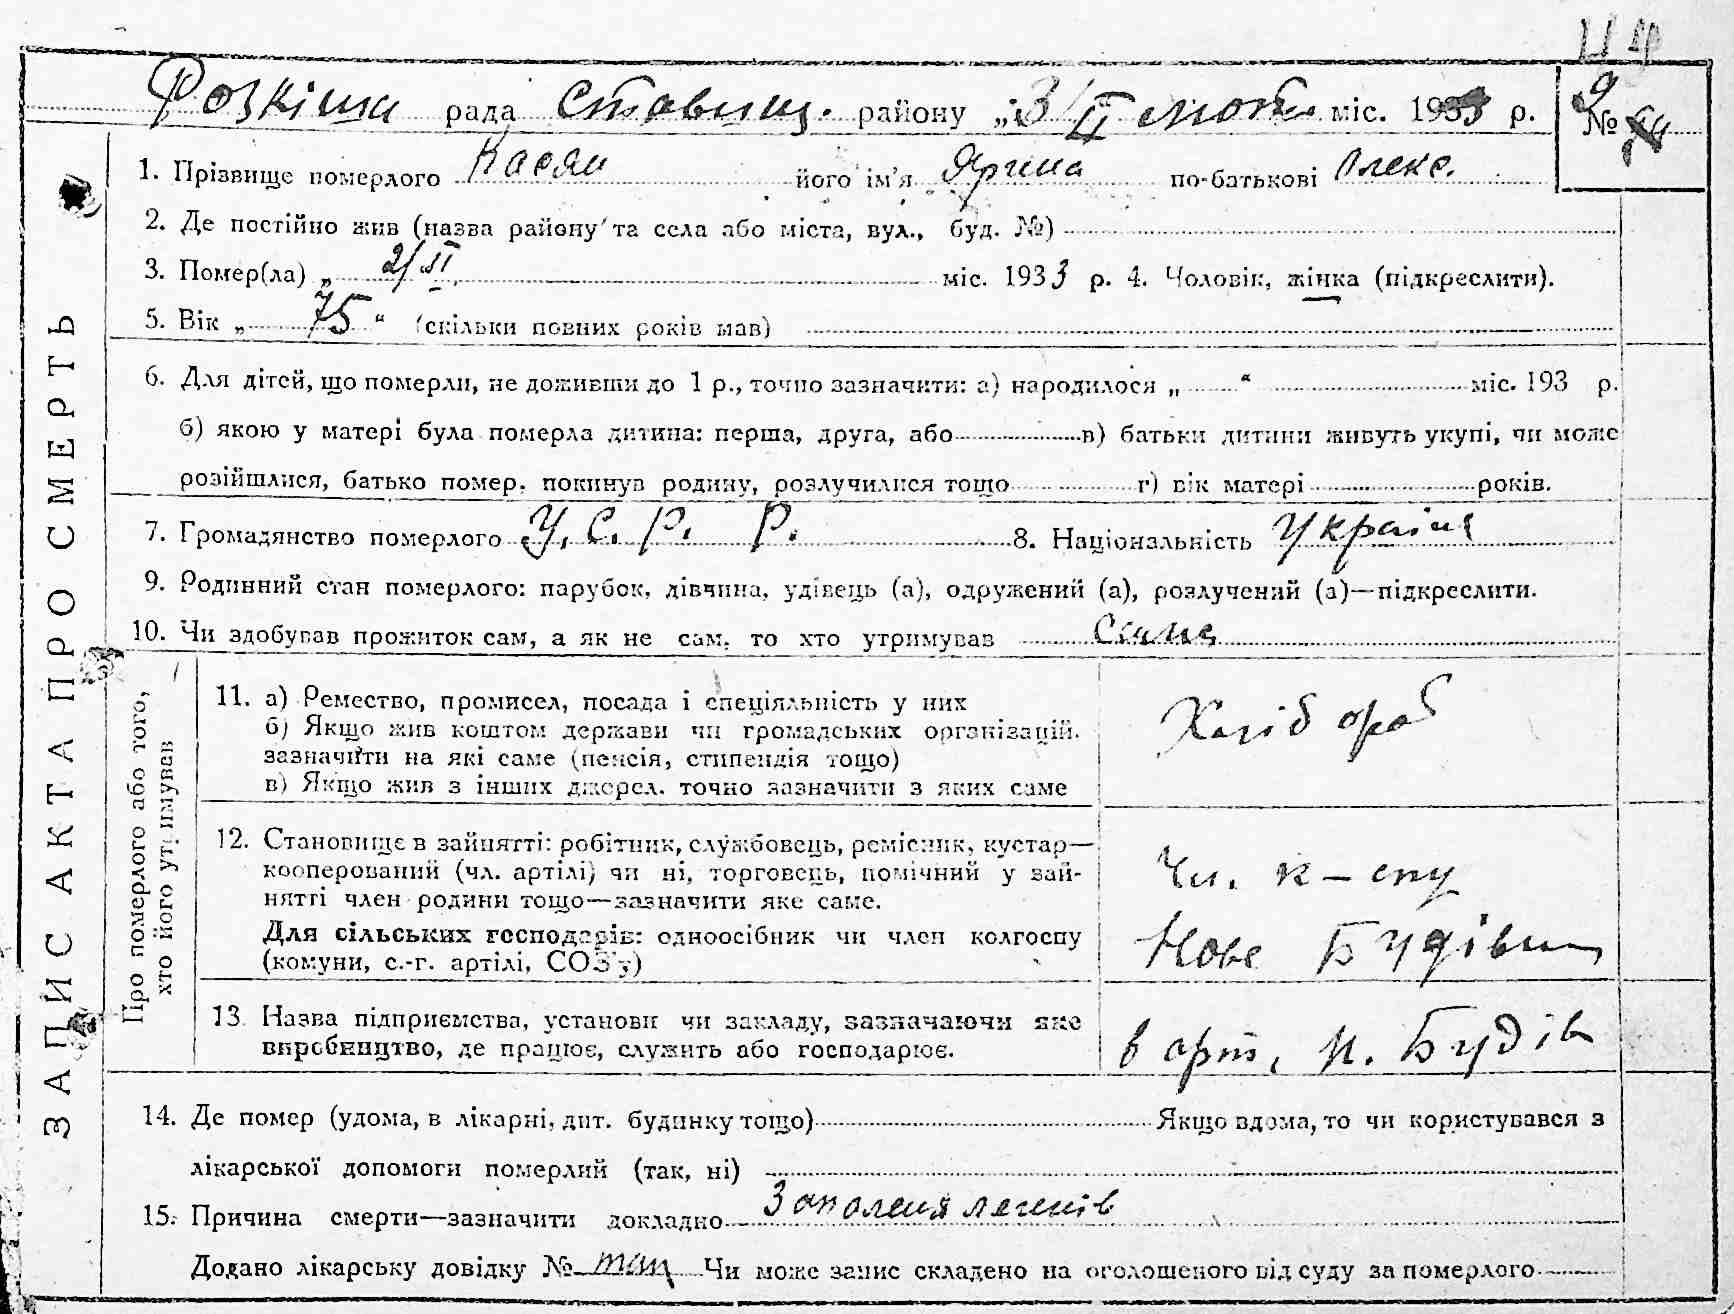 Розкішн рада Ставищ. району „3/II лютн міс. 1933 р.
9
№
ЗАПИС АКТА ПРО СМЕРТЬ
1. Прізвище померлого Касян його ім’я Ярина по-батькові Олекс.
2. Де постійно жив (назва району та села або міста, вул., буд. №)
3. Помер(ла) „ 2/II міс. 1933 р. 4. Чоловік, жінка (підкреслити).
5. Вік „ 75 “ (скільки повних років мав)
6. Для дітей, що померли, не доживши до 1 р., точно зазначити: а) народилося „ “ міс. 193 р.
б) якою у матері була померла дитина: перша, друга, або в) батьки дитини живуть укупі, чи може
розійшлися, батько помер, покинув родину, розлучилися тощо г) вік матері років.
7. Громадянство померлого У. С. Р. Р. 8. Національність Україн
9. Родинний стан померлого: парубок, дівчина, удівець (а), одружений (а), розлучений (а)—підкреслити.
10. Чи здобував прожиток сам, а як не сам, то хто утримував Сама
Про померлого або того,
хто його утримував
11. а) Ремество, промисел, посада і спеціяльність у них
б) Якщо жив коштом держави чи громадських організацій,
зазначити на які саме (пенсія, стипендія тощо)
в) Якщо жив з інших джерел, точно зазначити з яких саме
Хлібороб
12. Становище в зайнятті: робітник, службовець, ремісник, кустар—
кооперований (чл. артілі) чи ні, торговець, помічний у зай-
нятті член родини тощо—зазначити яке саме.
Для сільських господарів: одноосібник чи член колгоспу
(комуни, с.-г. артілі, СОЗ’у)
Чл. к–спу
Нове Будівн
13. Назва підприємства, установи чи закладу, зазначаючи яке
виробництво, де працює, служить або господарює.
в арт. н. Будів
14. Де помер (удома, в лікарні, дит. будинку тощо) Якщо вдома, то чи користувався з
лікарської допомоги померлий (так, ні)
15. Причина смерти—зазначити докладно Запаленя легенів
Додано лікарську довідку № Чи може запис складено на оголошеного від суду за померлого